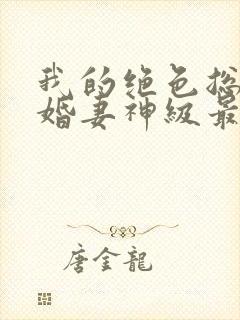 我的绝色总
婚妻神级最
唐金龍